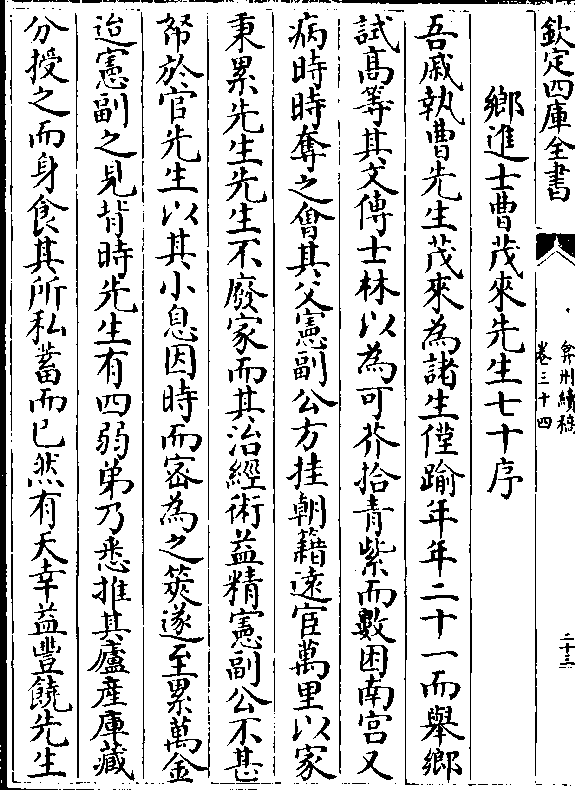 欽定四庫全書
弇州續稿
卷三十四
二十三
鄉進士曹茂來先生七十序
吾戚執曹先生茂來為諸生僅踰年年二十一而舉鄉
試髙等其文傳士林以為可芥拾青紫而數困南宫又
病時時奪之㑹其父憲副公方挂朝籍逺宦萬里以家
秉累先生先生不廢家而其治經術益精憲副公不甚
帑於官先生以其小息因時而宻為之筴遂至累萬金
迨憲副之見背時先生有四弱弟乃悉推其廬産庫藏
分授之而身食其所私蓄而已然有天幸益豐饒先生